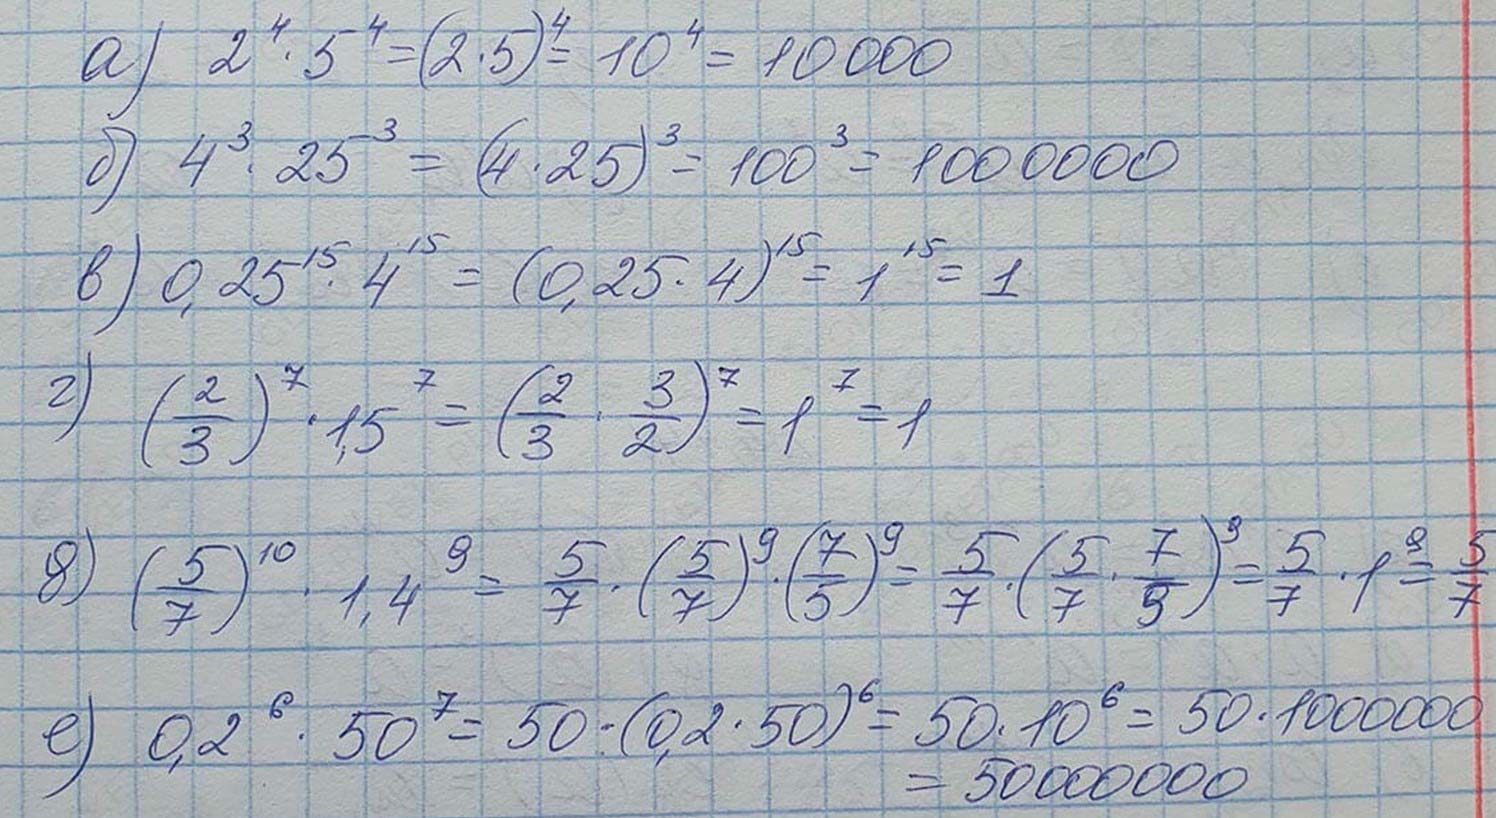 а) 2⁴ · 5⁴ = (2·5)⁴ = 10⁴ = 10000
б) 4³ · 25³ = (4·25)³ = 100³ = 1000000
в) 0,25¹⁵ · 4¹⁵ = (0,25·4)¹⁵ = 1¹⁵ = 1
г) (2/3)⁷ · 1,5⁷ = (2/3 · 3/2)⁷ = 1⁷ = 1
д) (5/7)¹⁰ · 1,4⁹ = 5/7 · (5/7)⁹ · (7/5)⁹ = 5/7 · (5/7 · 7/5)⁹ = 5/7 · 1⁹ = 5/7
е) 0,2⁶ · 50⁷ = 50 · (0,2·50)⁶ = 50 · 10⁶ = 50 · 1000000
= 50000000